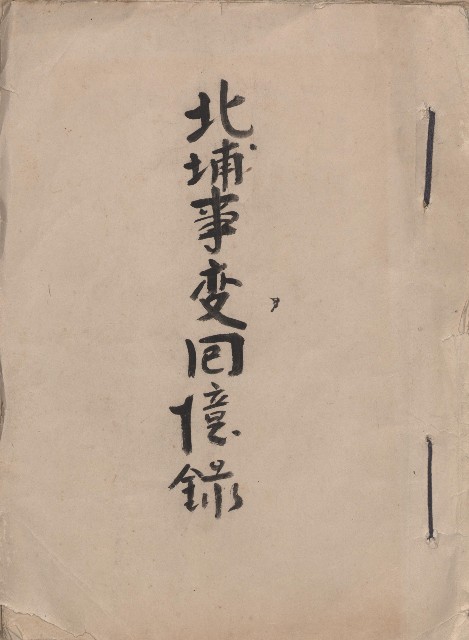 北埔事変回憶錄